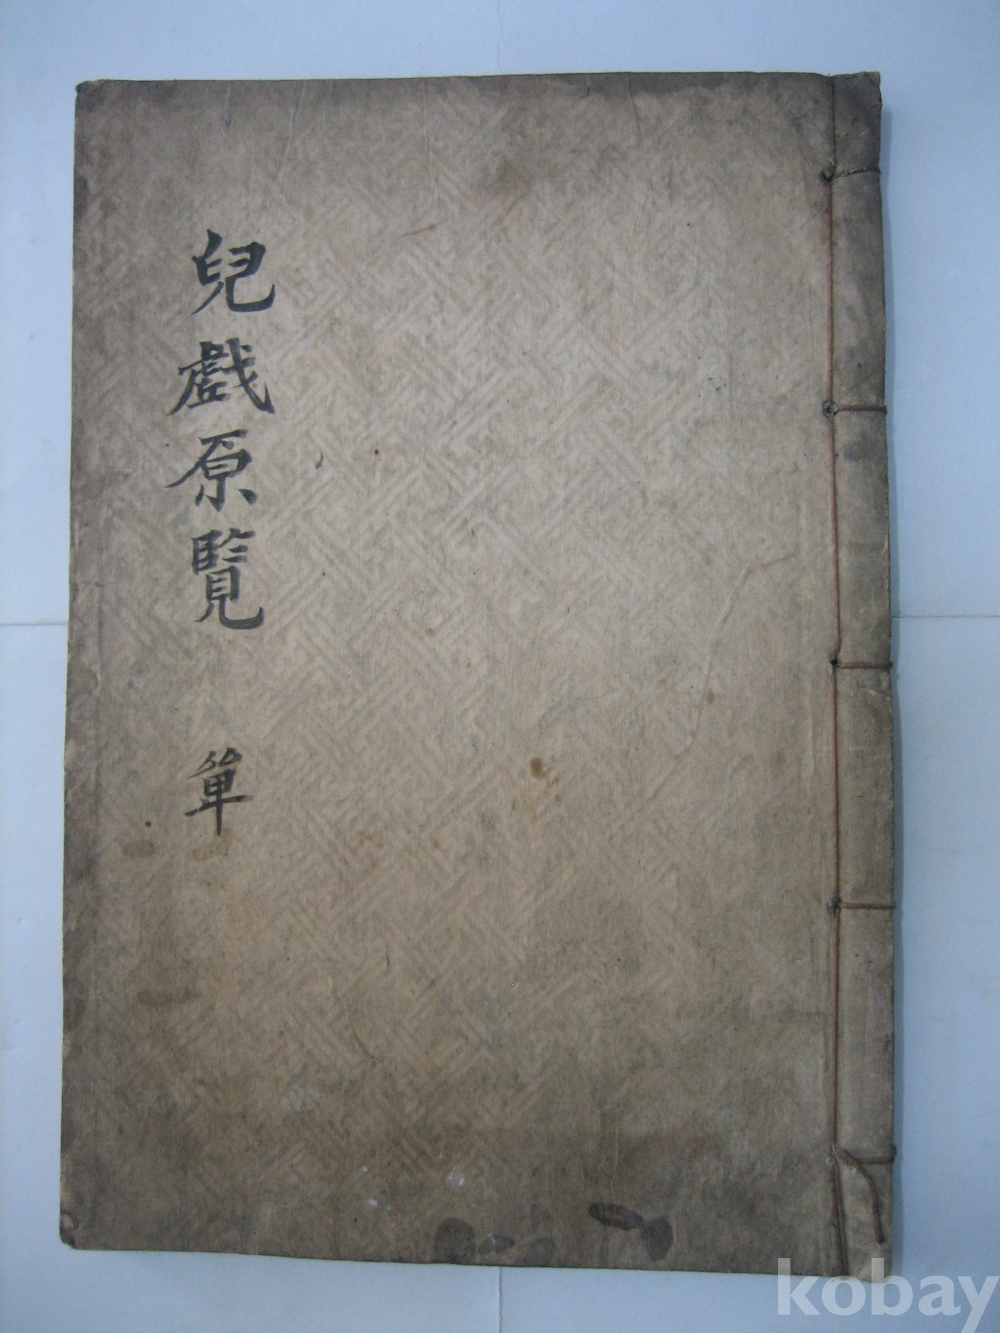 兒戲原覽 單
kobay